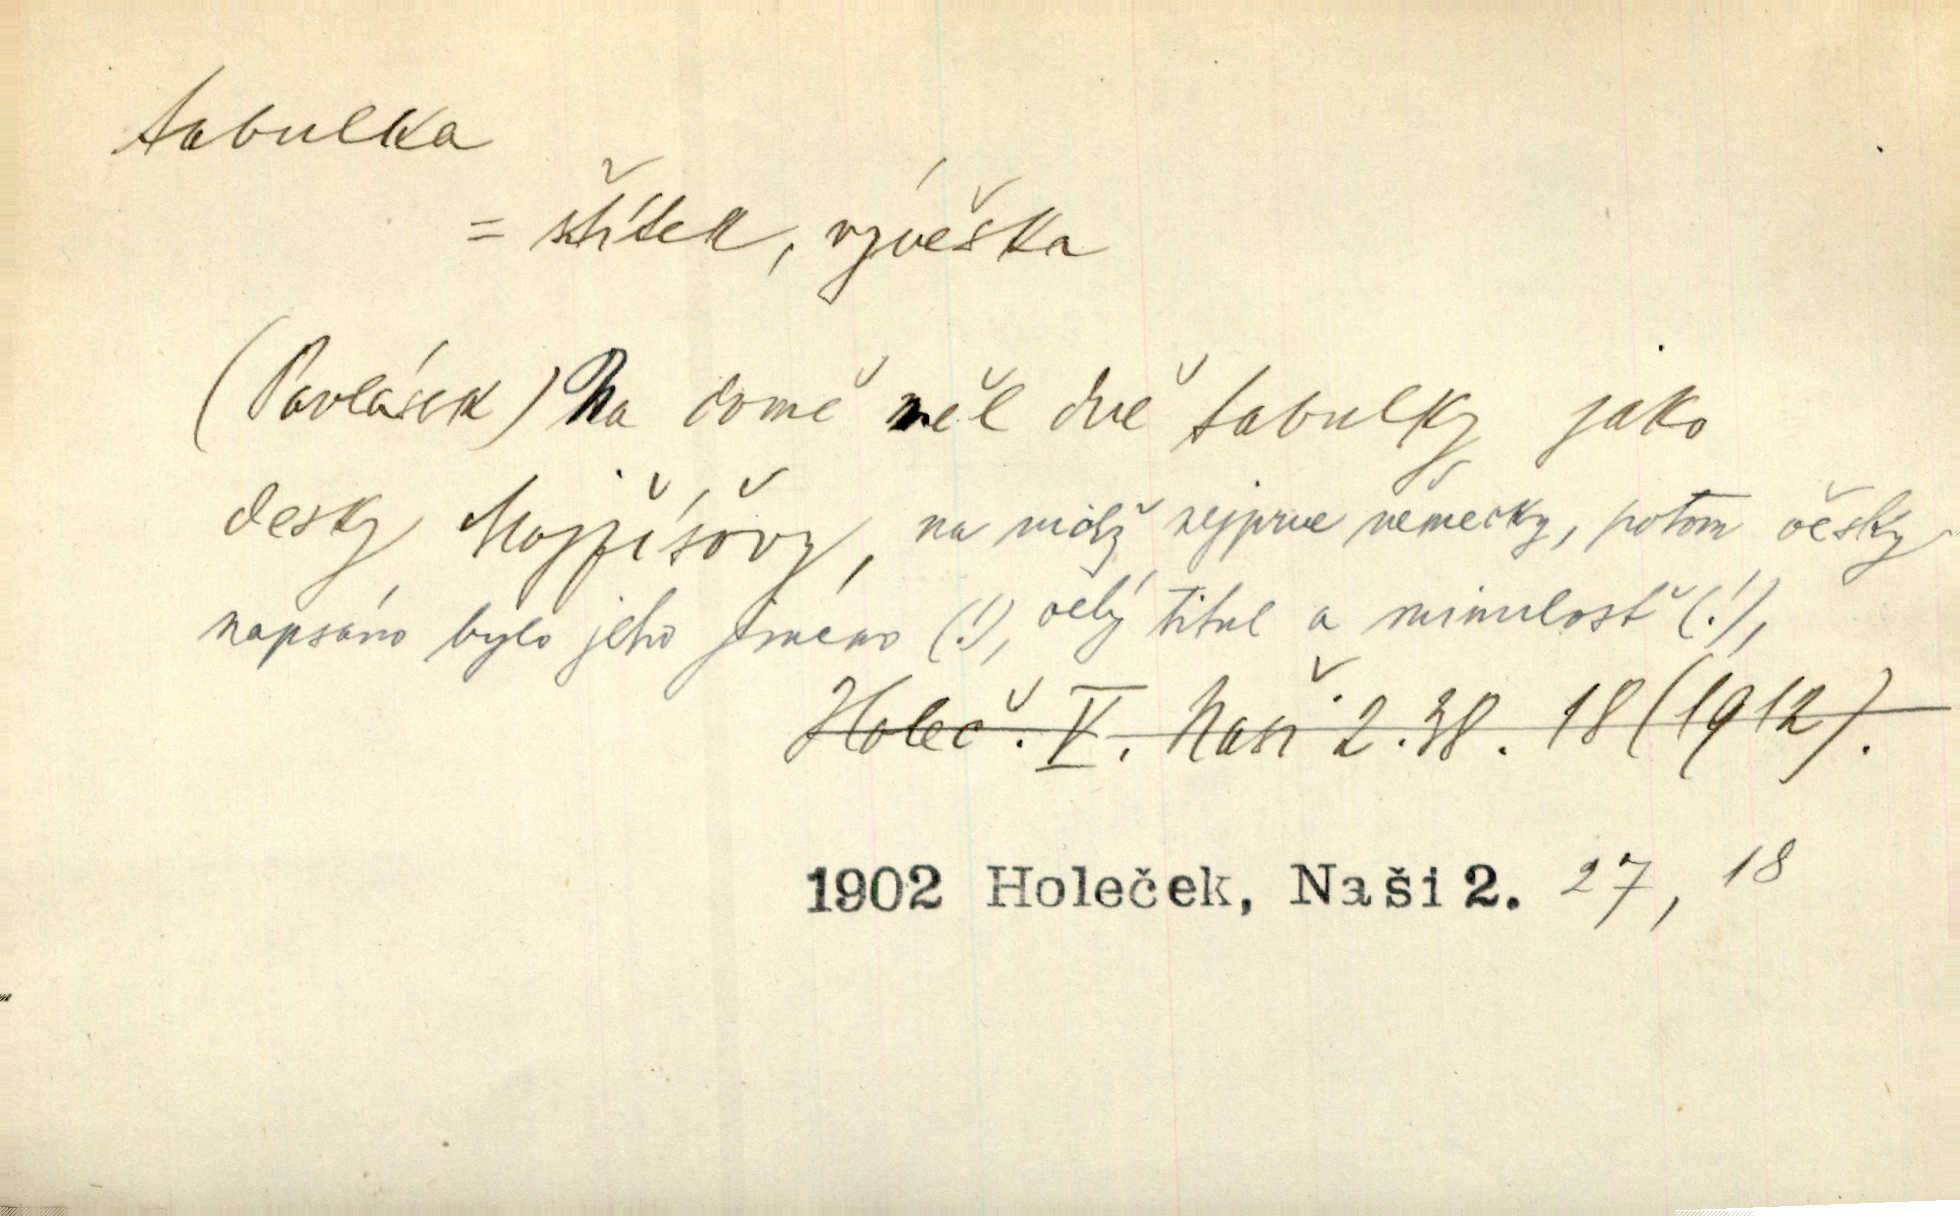 tabulka
= štítek, vývěška
(Pavlásek) Na domě měl dvě tabulky jako
desky Mojžíšovy, na nichž nejprve německy, potom česky
napsáno bylo jeho jméno (!), celý titul a minulost (!),
Holeč. V. Naši 2. 38. 18 (1912).
1902 Holeček, Naši 2. 27, 18